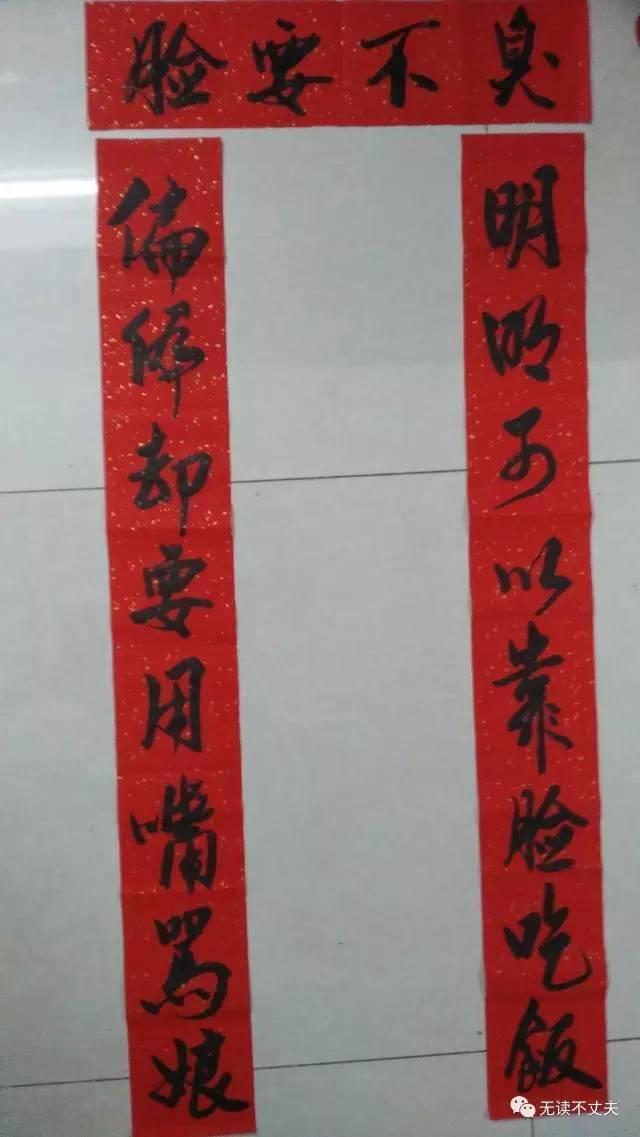 臭不要脸
明明可以靠脸吃饭
偏偏却要用嘴骂娘
无读不丈夫